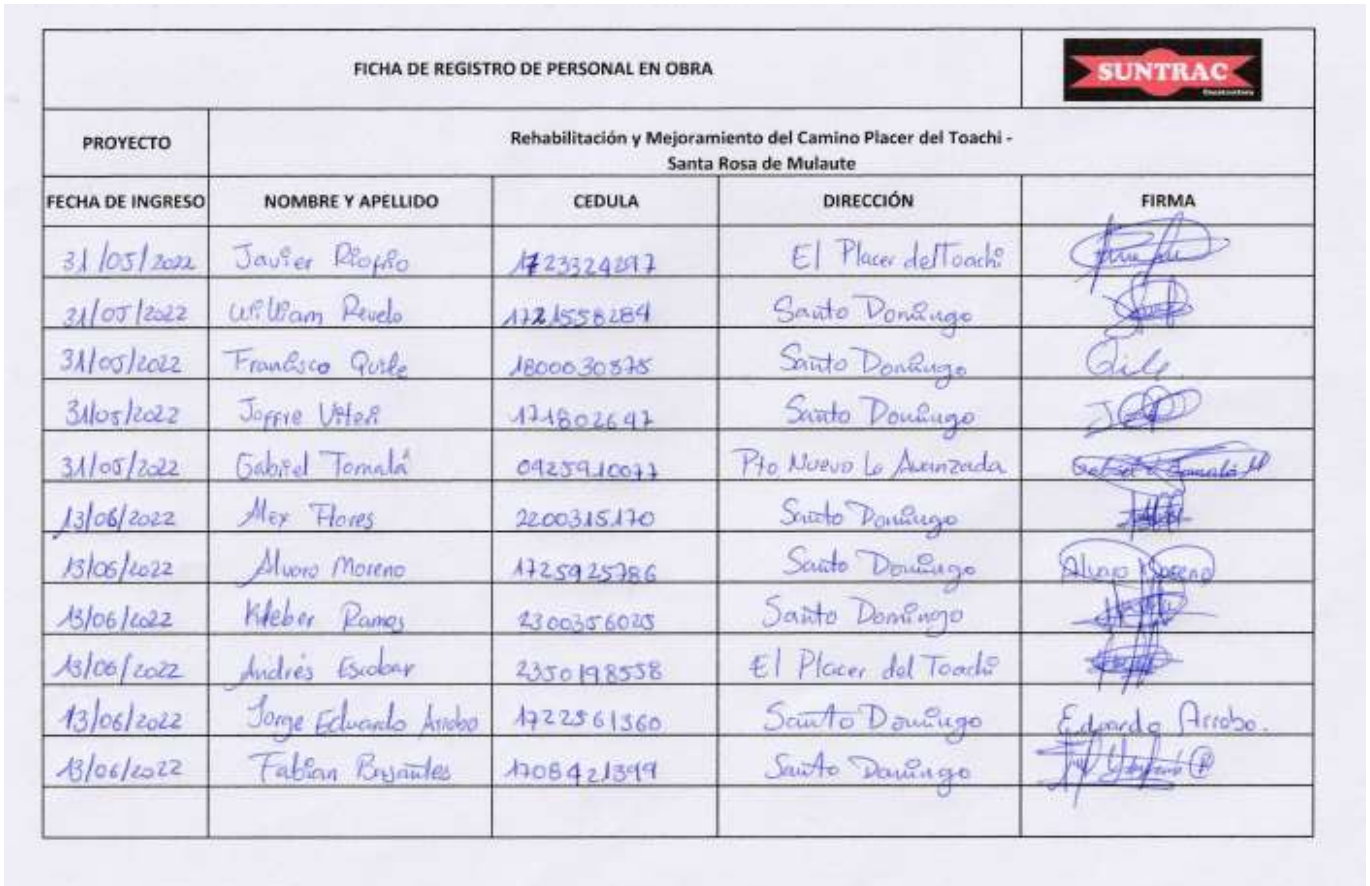 FICHA DE REGISTRO DE PERSONAL EN OBRA
SUNTRAC
Constructora
PROYECTO
Rehabilitación y Mejoramiento del Camino Placer del Toachi -
Santa Rosa de Mulaute
FECHA DE INGRESO NOMBRE Y APELLIDO CEDULA DIRECCIÓN FIRMA
31/05/2022 Javier Riofrio 1723324297 El Placer del Toachi
31/05/2022 William Revelo 1721558284 Santo Domingo
31/05/2022 Francisco Quile 1800030875 Santo Domingo Quile
31/05/2022 Joffre Viteri 171802647 Santo Domingo
31/05/2022 Gabriel Tomalá 0925910077 Pto Nuevo La Avanzada Gabriel Tomalá M
13/06/2022 Alex Flores 2200315170 Santo Domingo
13/06/2022 Alvaro Moreno 1725925786 Santo Domingo Alvaro Moreno
13/06/2022 Kleber Ramos 2300356025 Santo Domingo
13/06/2022 Andrés Escobar 2350198558 El Placer del Toachi
13/06/2022 Jorge Eduardo Arrobo 1722561360 Santo Domingo Eduardo Arrobo.
13/06/2022 Fabian 1708421399 Santo Domingo